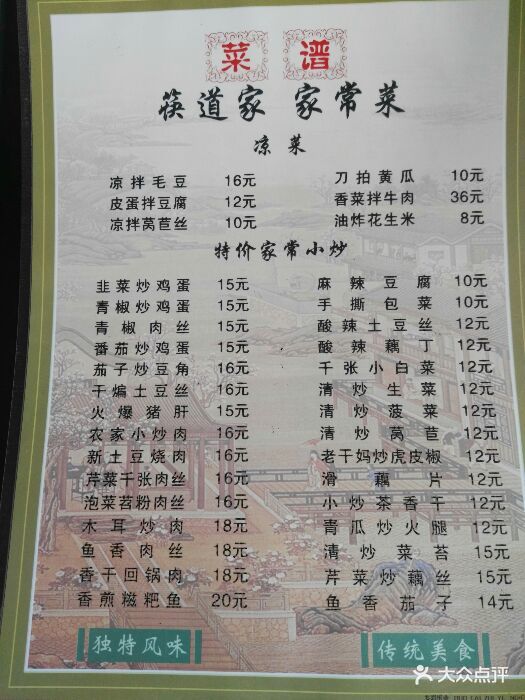 菜谱
筷道家 家常菜
凉菜
凉拌毛豆 16元
皮蛋拌豆腐 12元
凉拌莴苣丝 10元
刀拍黄瓜 10元
香菜拌牛肉 36元
油炸花生米 8元
特价家常小炒
韭菜炒鸡蛋 15元
青椒炒鸡蛋 15元
青椒肉丝 15元
番茄炒鸡蛋 15元
茄子炒豆角 16元
干煸土豆丝 16元
火爆猪肝 15元
农家小炒肉 16元
新土豆烧肉 16元
芹菜千张肉丝 16元
泡菜苕粉肉丝 16元
木耳炒肉 18元
鱼香肉丝 18元
香干回锅肉 18元
香煎糍粑鱼 20元
麻辣豆腐 10元
手撕包菜 10元
酸辣土豆丝 12元
酸辣藕丁 12元
千张小白菜 12元
清炒生菜 12元
清炒菠菜 12元
清炒莴苣 12元
老干妈炒虎皮椒 12元
滑藕片 12元
小炒茶香干 12元
青瓜炒火腿 12元
清炒菜苔 15元
芹菜炒藕丝 15元
鱼香茄子 14元
独特风味
传统美食
大众点评